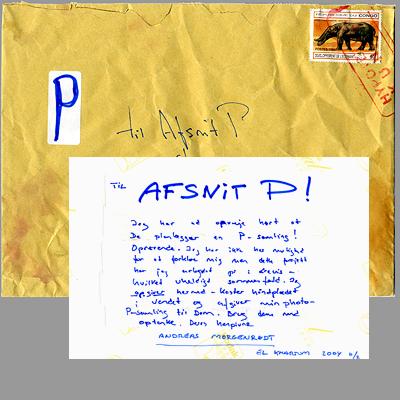 CONGO
P
til Afsnit P
TIL AFSNIT P!
Jeg har ad omveje hørt at
De planlægger en P-samling!
Oprørende. Jeg har ikke mulighed
for at forklare mig men dette projekt
har jeg arbejdet på i årevis -
hvilket uheldigt sammenfald. Jeg
opgiver hermed - kaster håndklædet
i vandet og afgiver min photo-
P-samling til Dem. Brug dem med
omtanke. Deres hengivne
ANDREAS MORGENRØDT
EL KHARTUM 2004